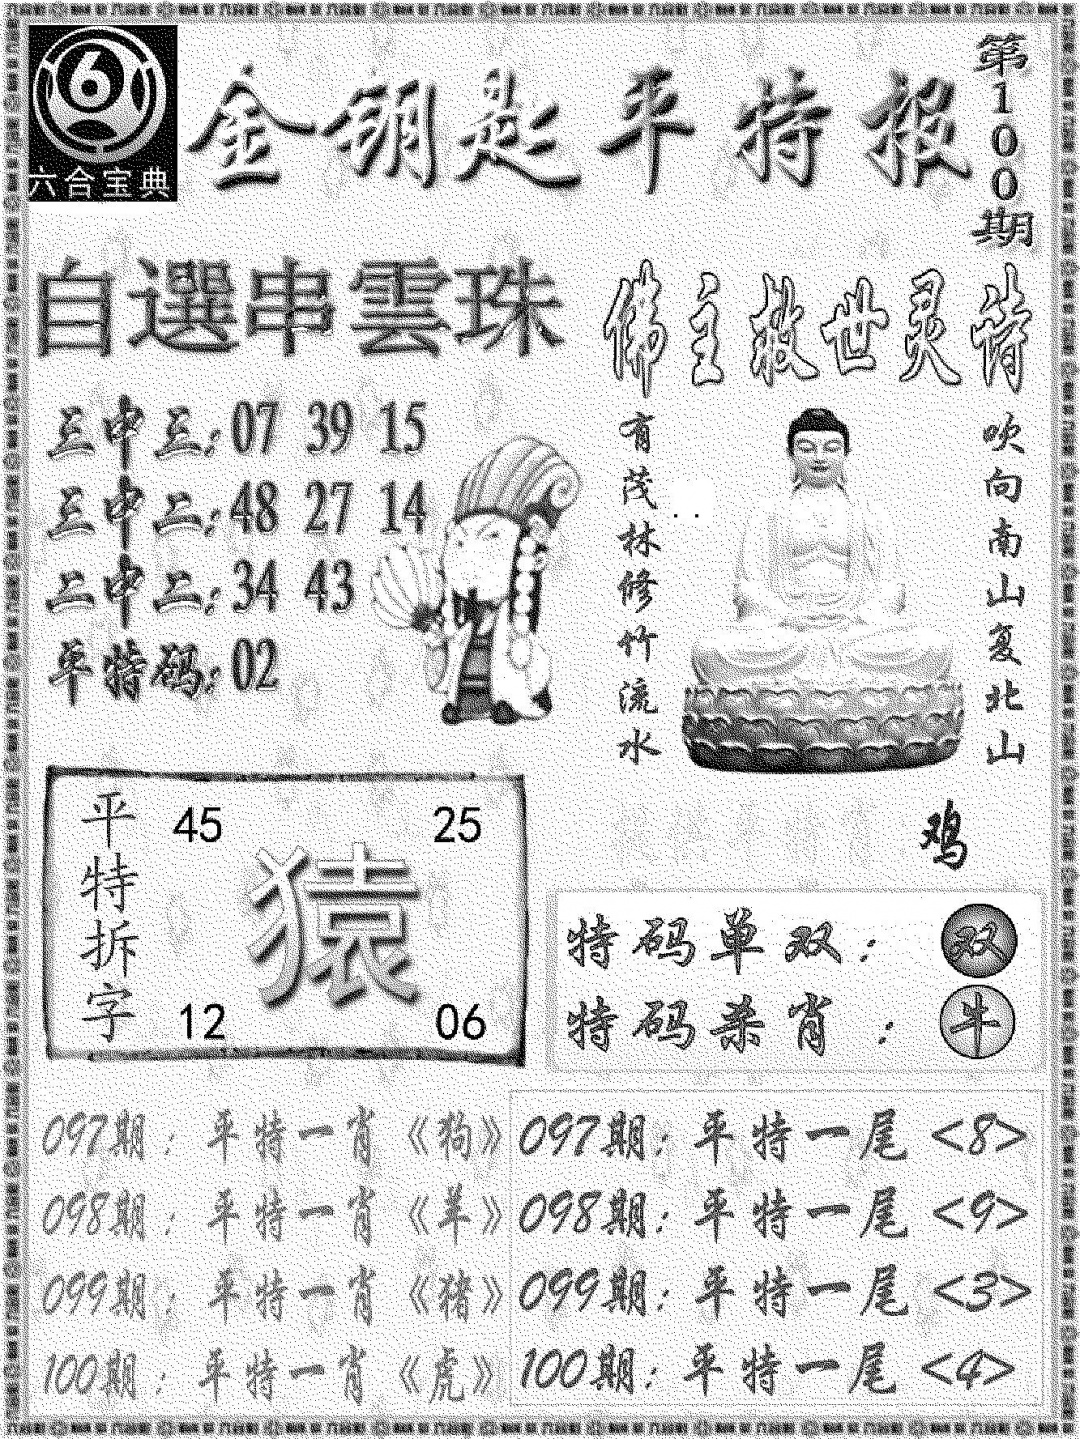 六合宝典
金钥匙平特报
第100期
自選串雲珠
三中三:07 39 15
三中二:48 27 14
二中二:34 43
平特码:02
佛主救世灵诗
吹向南山复北山
有茂林修竹流水
鸡
平特拆字
45 25
猿
12 06
特码单双：双
特码杀肖：牛
097期：平特一肖《狗》
098期：平特一肖《羊》
099期：平特一肖《猪》
100期：平特一肖《虎》
097期：平特一尾<8>
098期：平特一尾<9>
099期：平特一尾<3>
100期：平特一尾<4>